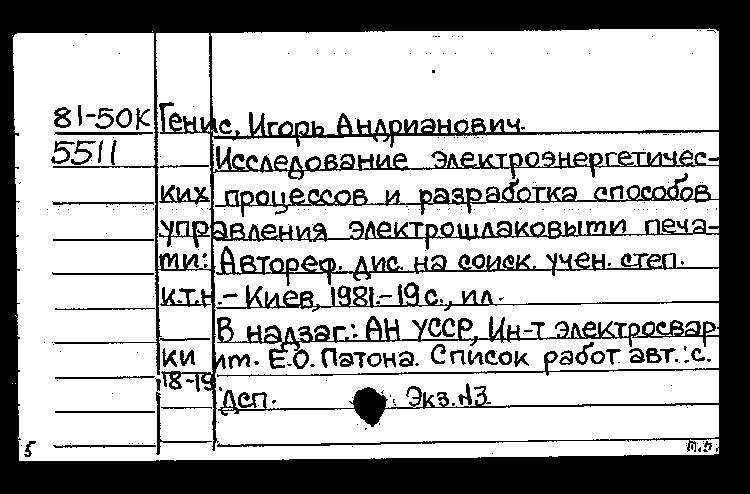 81-50К Генис, Игорь Андрианович.
5511 Исследование электроэнергетичес-
ких процессов и разработка способов
управления электрошлаковыми печа-
ми: Автореф. дис. на соиск. учен. степ.
к.т.н. - Киев, 1981. - 19 с., ил.
В надзаг.: АН УССР, Ин-т электросвар
ки им. Е.О. Патона. Список работ авт.: с.
18-19.
Дсп. Экз. №3
5